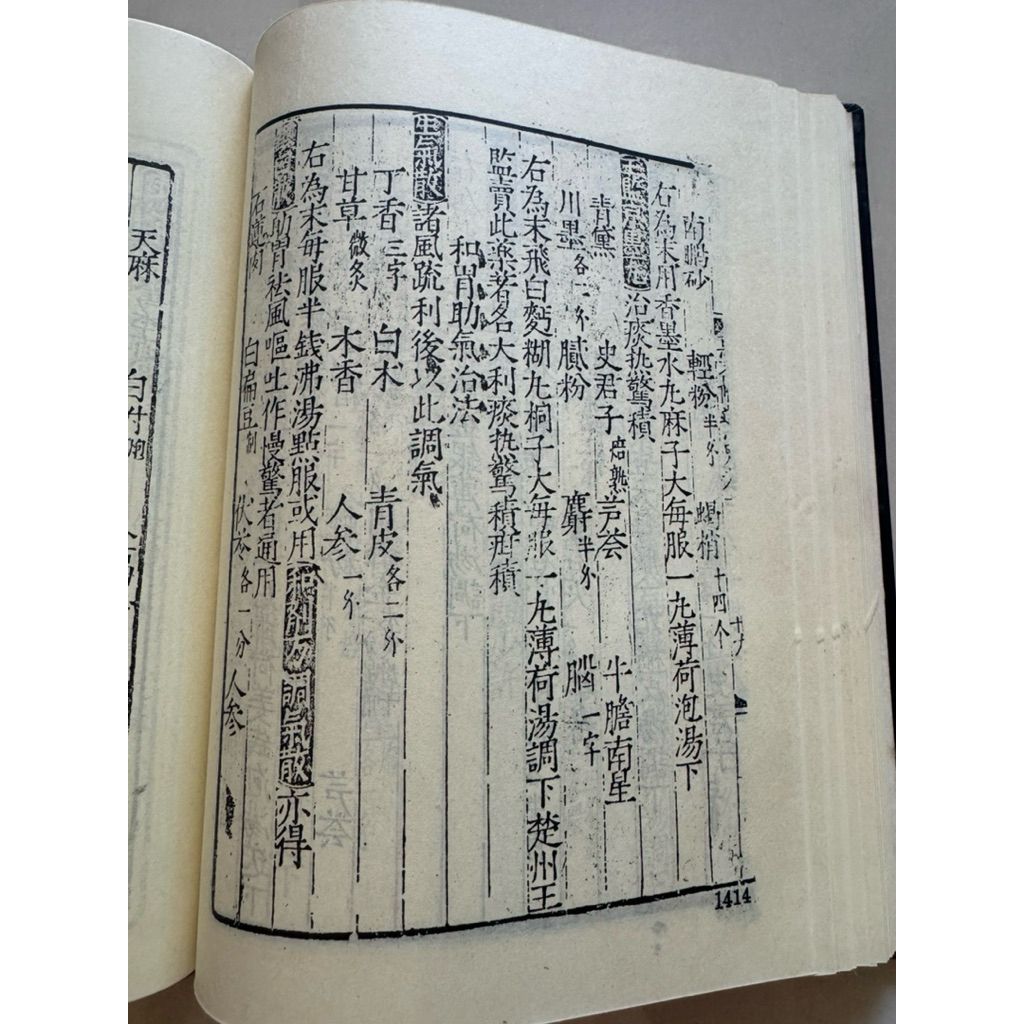 鵬砂 輕粉半分 蝎梢十四个
右為末用香墨水九麻子大每服一九薄荷泡湯下
治痰热驚積
青黛 史君子焙熟 芦荟 牛膽南星
川墨各一分 膩粉 麝半分 腦一字
右為末飛白麪糊九桐子大每服一九薄荷湯調下楚州王
監賣此薬著名大利痰热驚積疳積
和胃助氣治法
生氣散諸風疏利後以此調氣
丁香三字 白术 青皮各二分
甘草微炙 木香 人参一分
右為末每服半錢沸湯點服或用 散亦得
助胃祛風嘔吐作慢驚者通用
石蓮肉 白扁豆制 伏苓各一分 人参
1414
天麻
白付炮